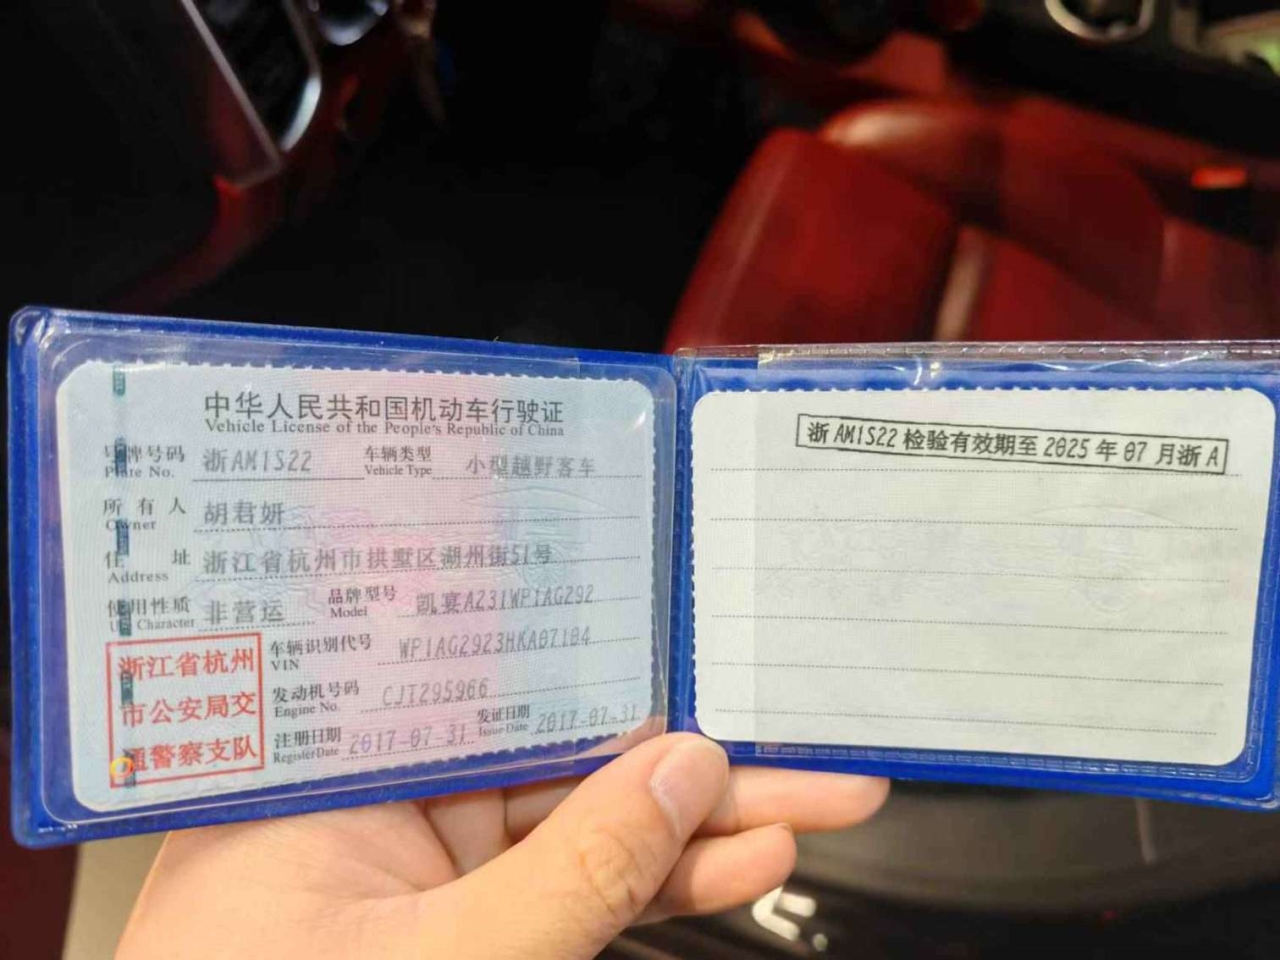 中华人民共和国机动车行驶证
Vehicle License of the People's Republic of China
号牌号码 浙AM1S22 车辆类型 小型越野客车
Plate No. Vehicle Type
所有人 胡君妍
Owner
住址 浙江省杭州市拱墅区湖州街51号
Address
使用性质 非营运 品牌型号 凯宴A231WP1AG292
Use Character Model
浙江省杭州
市公安局交
通警察支队
车辆识别代号 WP1AG2923HKA07184
VIN
发动机号码 CJT295966
Engine No.
注册日期 2017-07-31 发证日期 2017-07-31
Register Date Issue Date
浙AM1S22检验有效期至2025年07月浙A